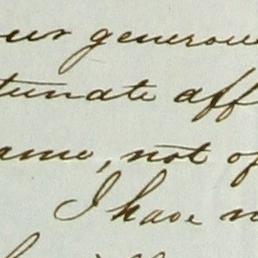 our generou
tunate aff
ame, not of
I have n